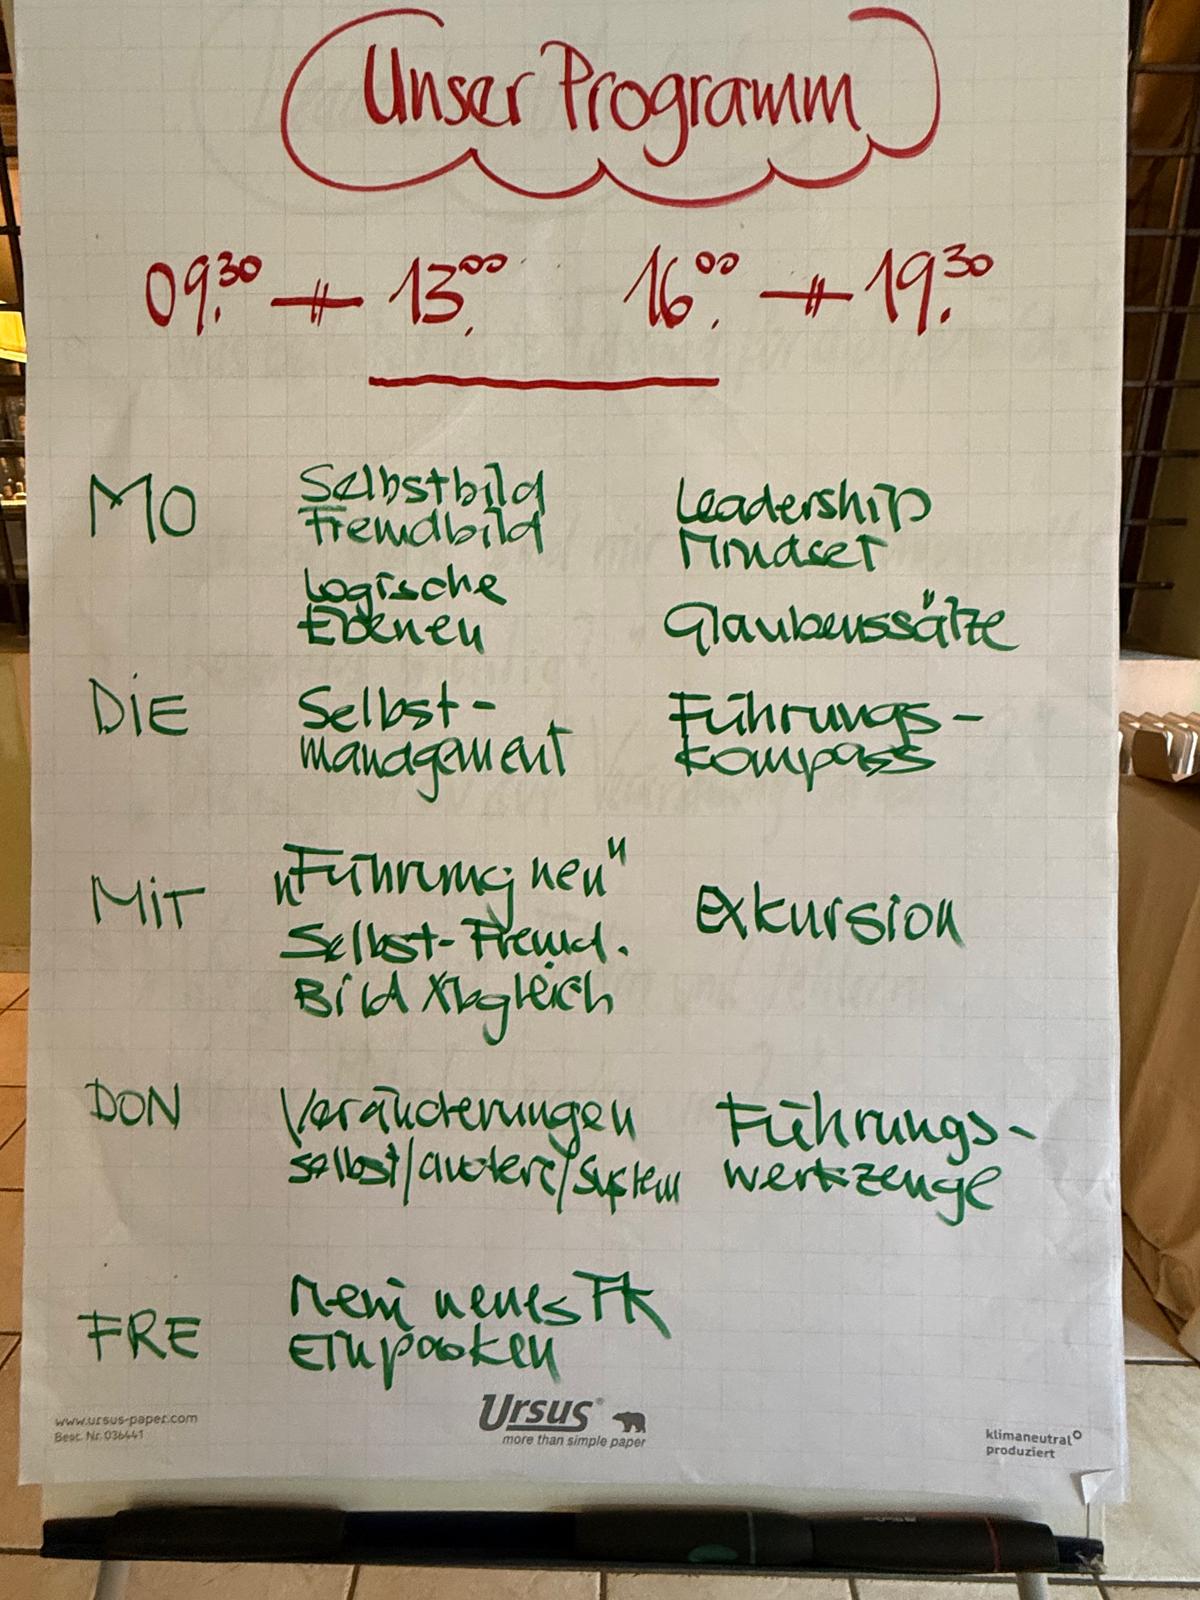 Unser Programm
09.30 – 13.00 16.00 – 19.30
MO
Selbstbild
Fremdbild
Logische
Ebenen
Leadership
Mindset
Glaubenssätze
DiE
Selbst-
management
Führungs-
kompass
MiT
„Führung neu"
Selbst-Fremd.
Bild Abgleich
Exkursion
DON
Veränderungen
selbst/andere/System
Führungs-
werkzeuge
FRE
Mein neues FK
Einpacken
www.ursus-paper.com
Best. Nr. 036441
Ursus®
more than simple paper
klimaneutral
produziert